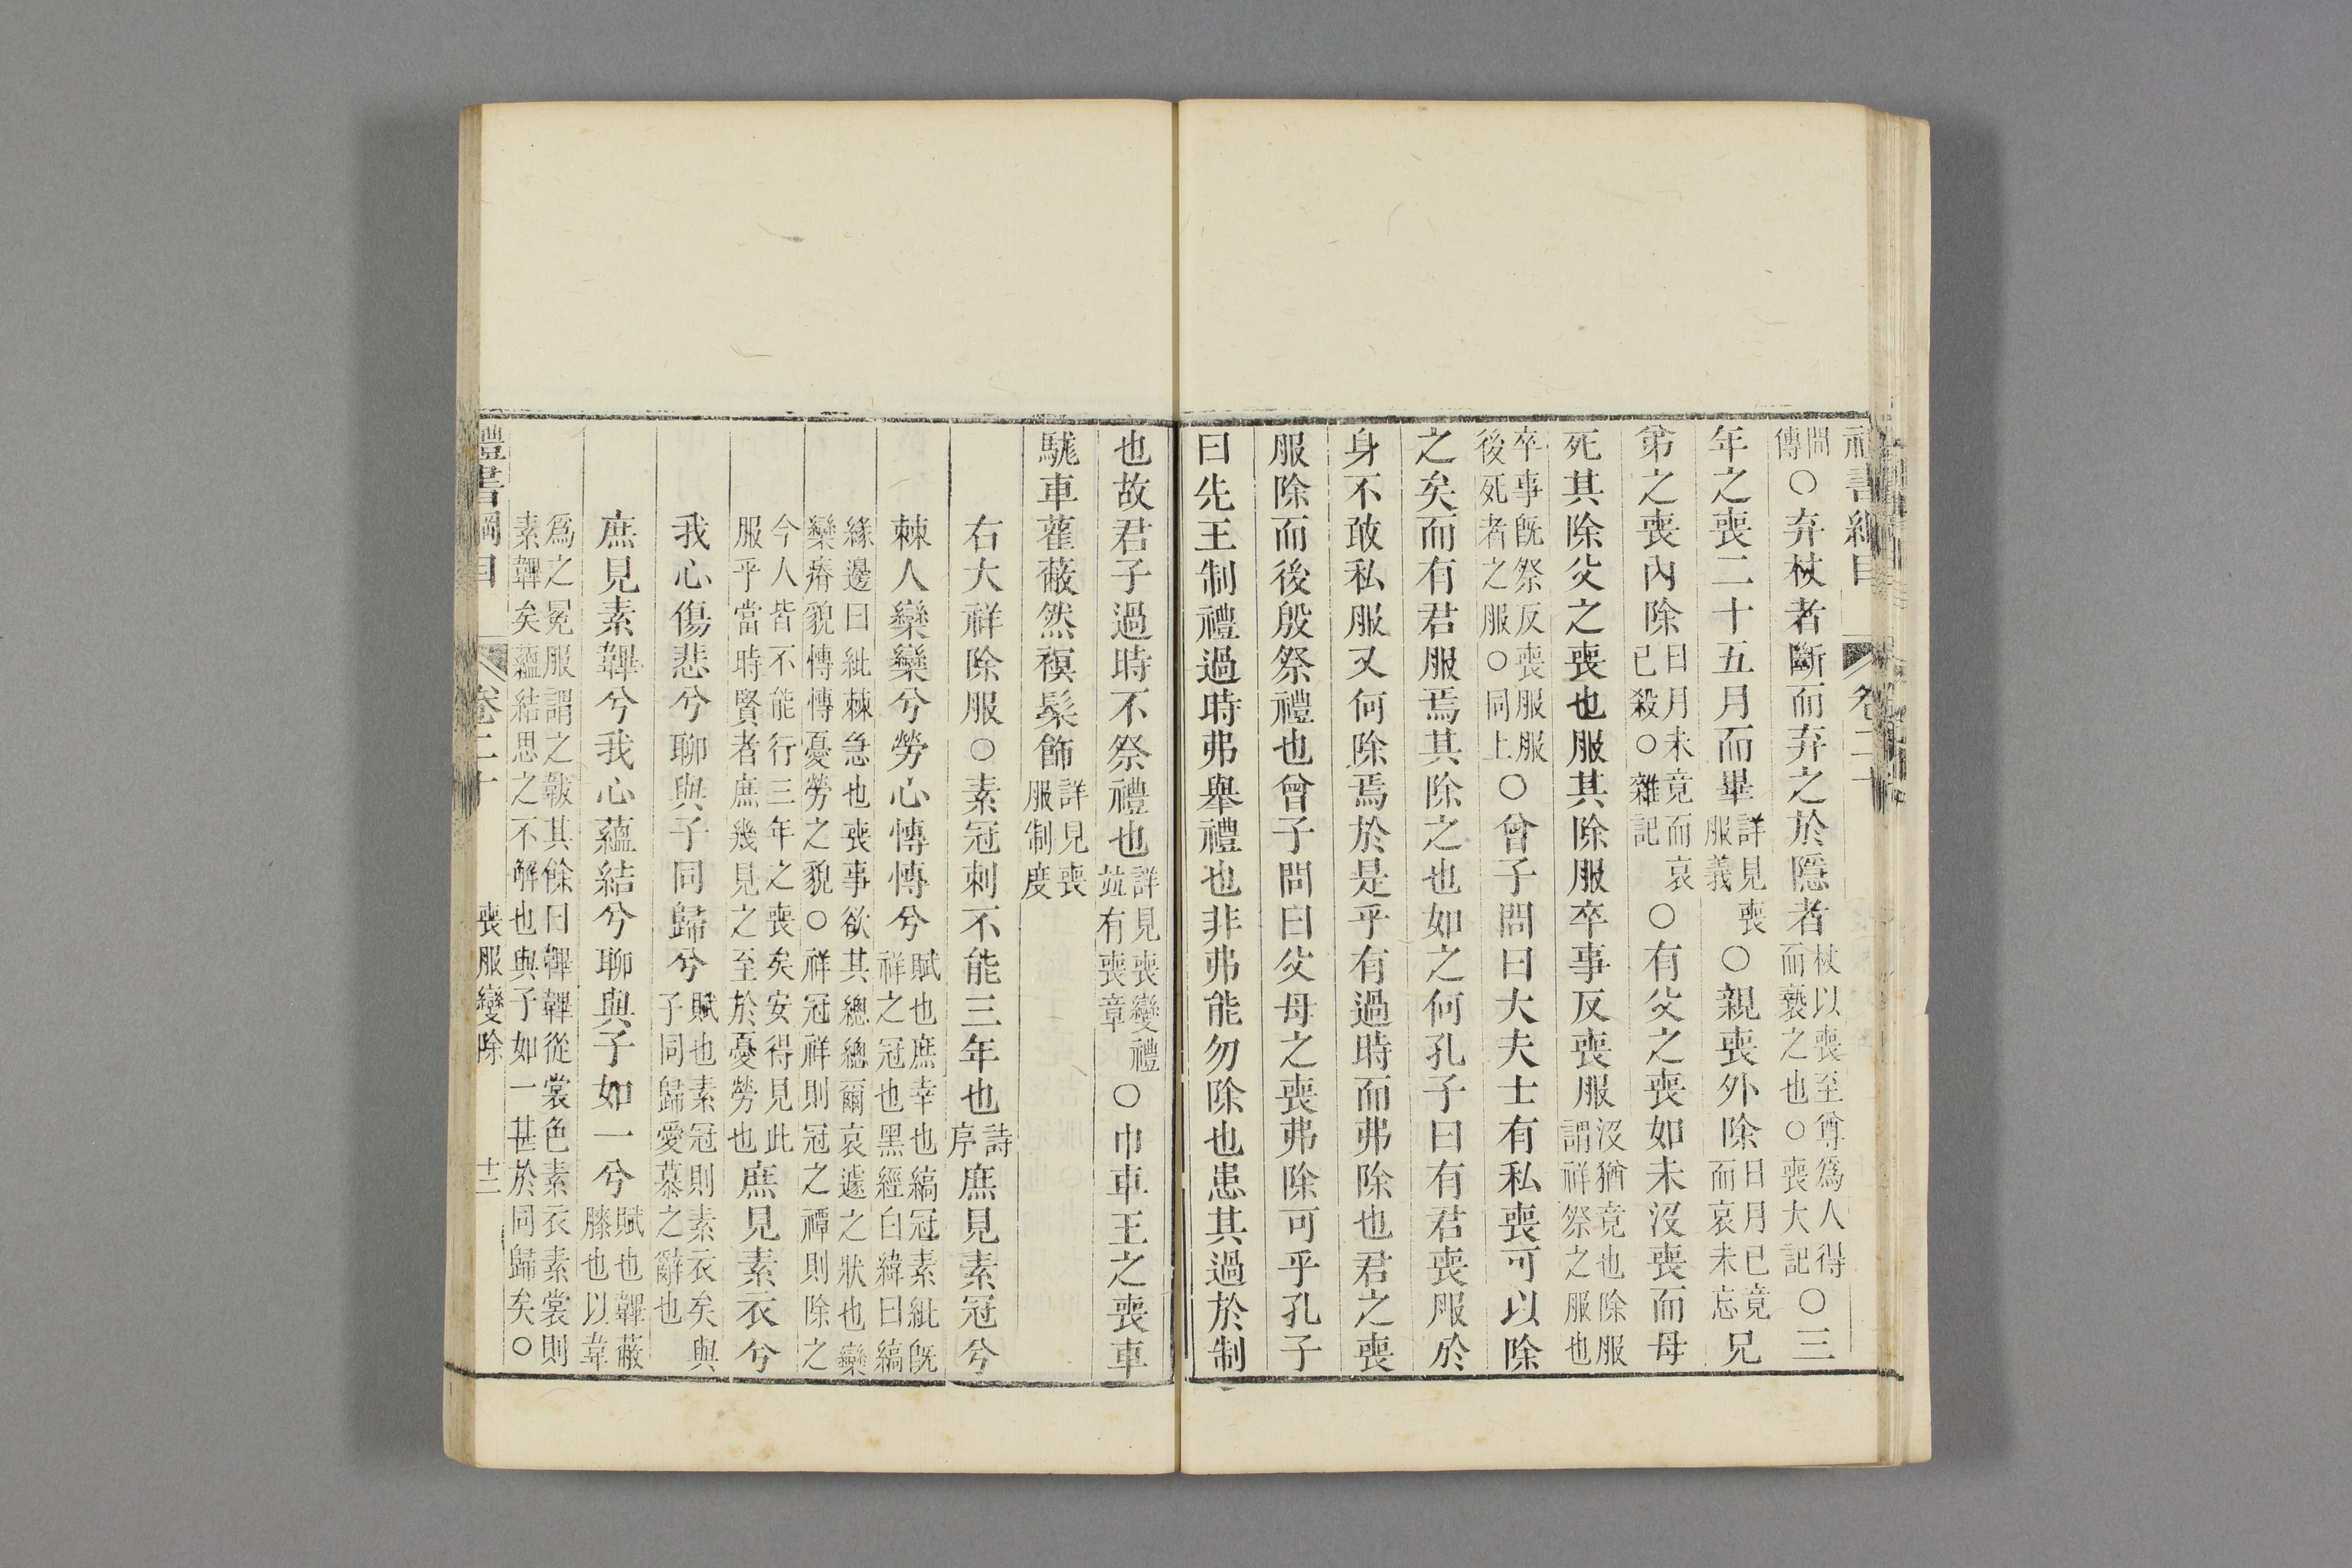 禮書綱目 卷二十
問傳○弃杖者斷而弃之於隱者杖以喪至尊爲人得而褻之也○喪大記○三
年之喪二十五月而畢詳見喪服義○親喪外除日月已竟而哀未忘兄
弟之喪內除日月未竟而哀已殺○雜記○有父之喪如未沒喪而母
死其除父之喪也服其除服卒事反喪服沒猶竟也除服謂祥祭之服也
卒事旣祭反喪服服後死者之服○同上○曾子問曰大夫士有私喪可以除
之矣而有君服焉其除之也如之何孔子曰有君喪服於
身不敢私服又何除焉於是乎有過時而弗除也君之喪
服除而後殷祭禮也曾子問曰父母之喪弗除可乎孔子
曰先王制禮過時弗舉禮也非弗能勿除也患其過於制
也故君子過時不祭禮也詳見喪變禮竝有喪章○巾車王之喪車
駹車雚蔽然𧜀髹飾詳見喪服制度
右大祥除服○素冠刺不能三年也詩序庶見素冠兮
棘人欒欒兮勞心慱慱兮賦也庶幸也縞冠素紕旣祥之冠也黑經白緯曰縞
緣邊曰紕棘急也喪事欲其總總爾哀遽之狀也欒欒瘠貌慱慱憂勞之貌○祥冠祥則冠之禫則除之
今人皆不能行三年之喪矣安得見此服乎當時賢者庶幾見之至於憂勞也庶見素衣兮
我心傷悲兮聊與子同歸兮賦也素冠則素衣矣與子同歸愛慕之辭也
庶見素韠兮我心蘊結兮聊與子如一兮賦也韠蔽膝也以韋
爲之冕服謂之韍其餘曰韠韠從裳色素衣素裳則素韠矣蘊結思之不解也與子如一甚於同歸矣○
禮書綱目 卷二十 喪服變除 十二